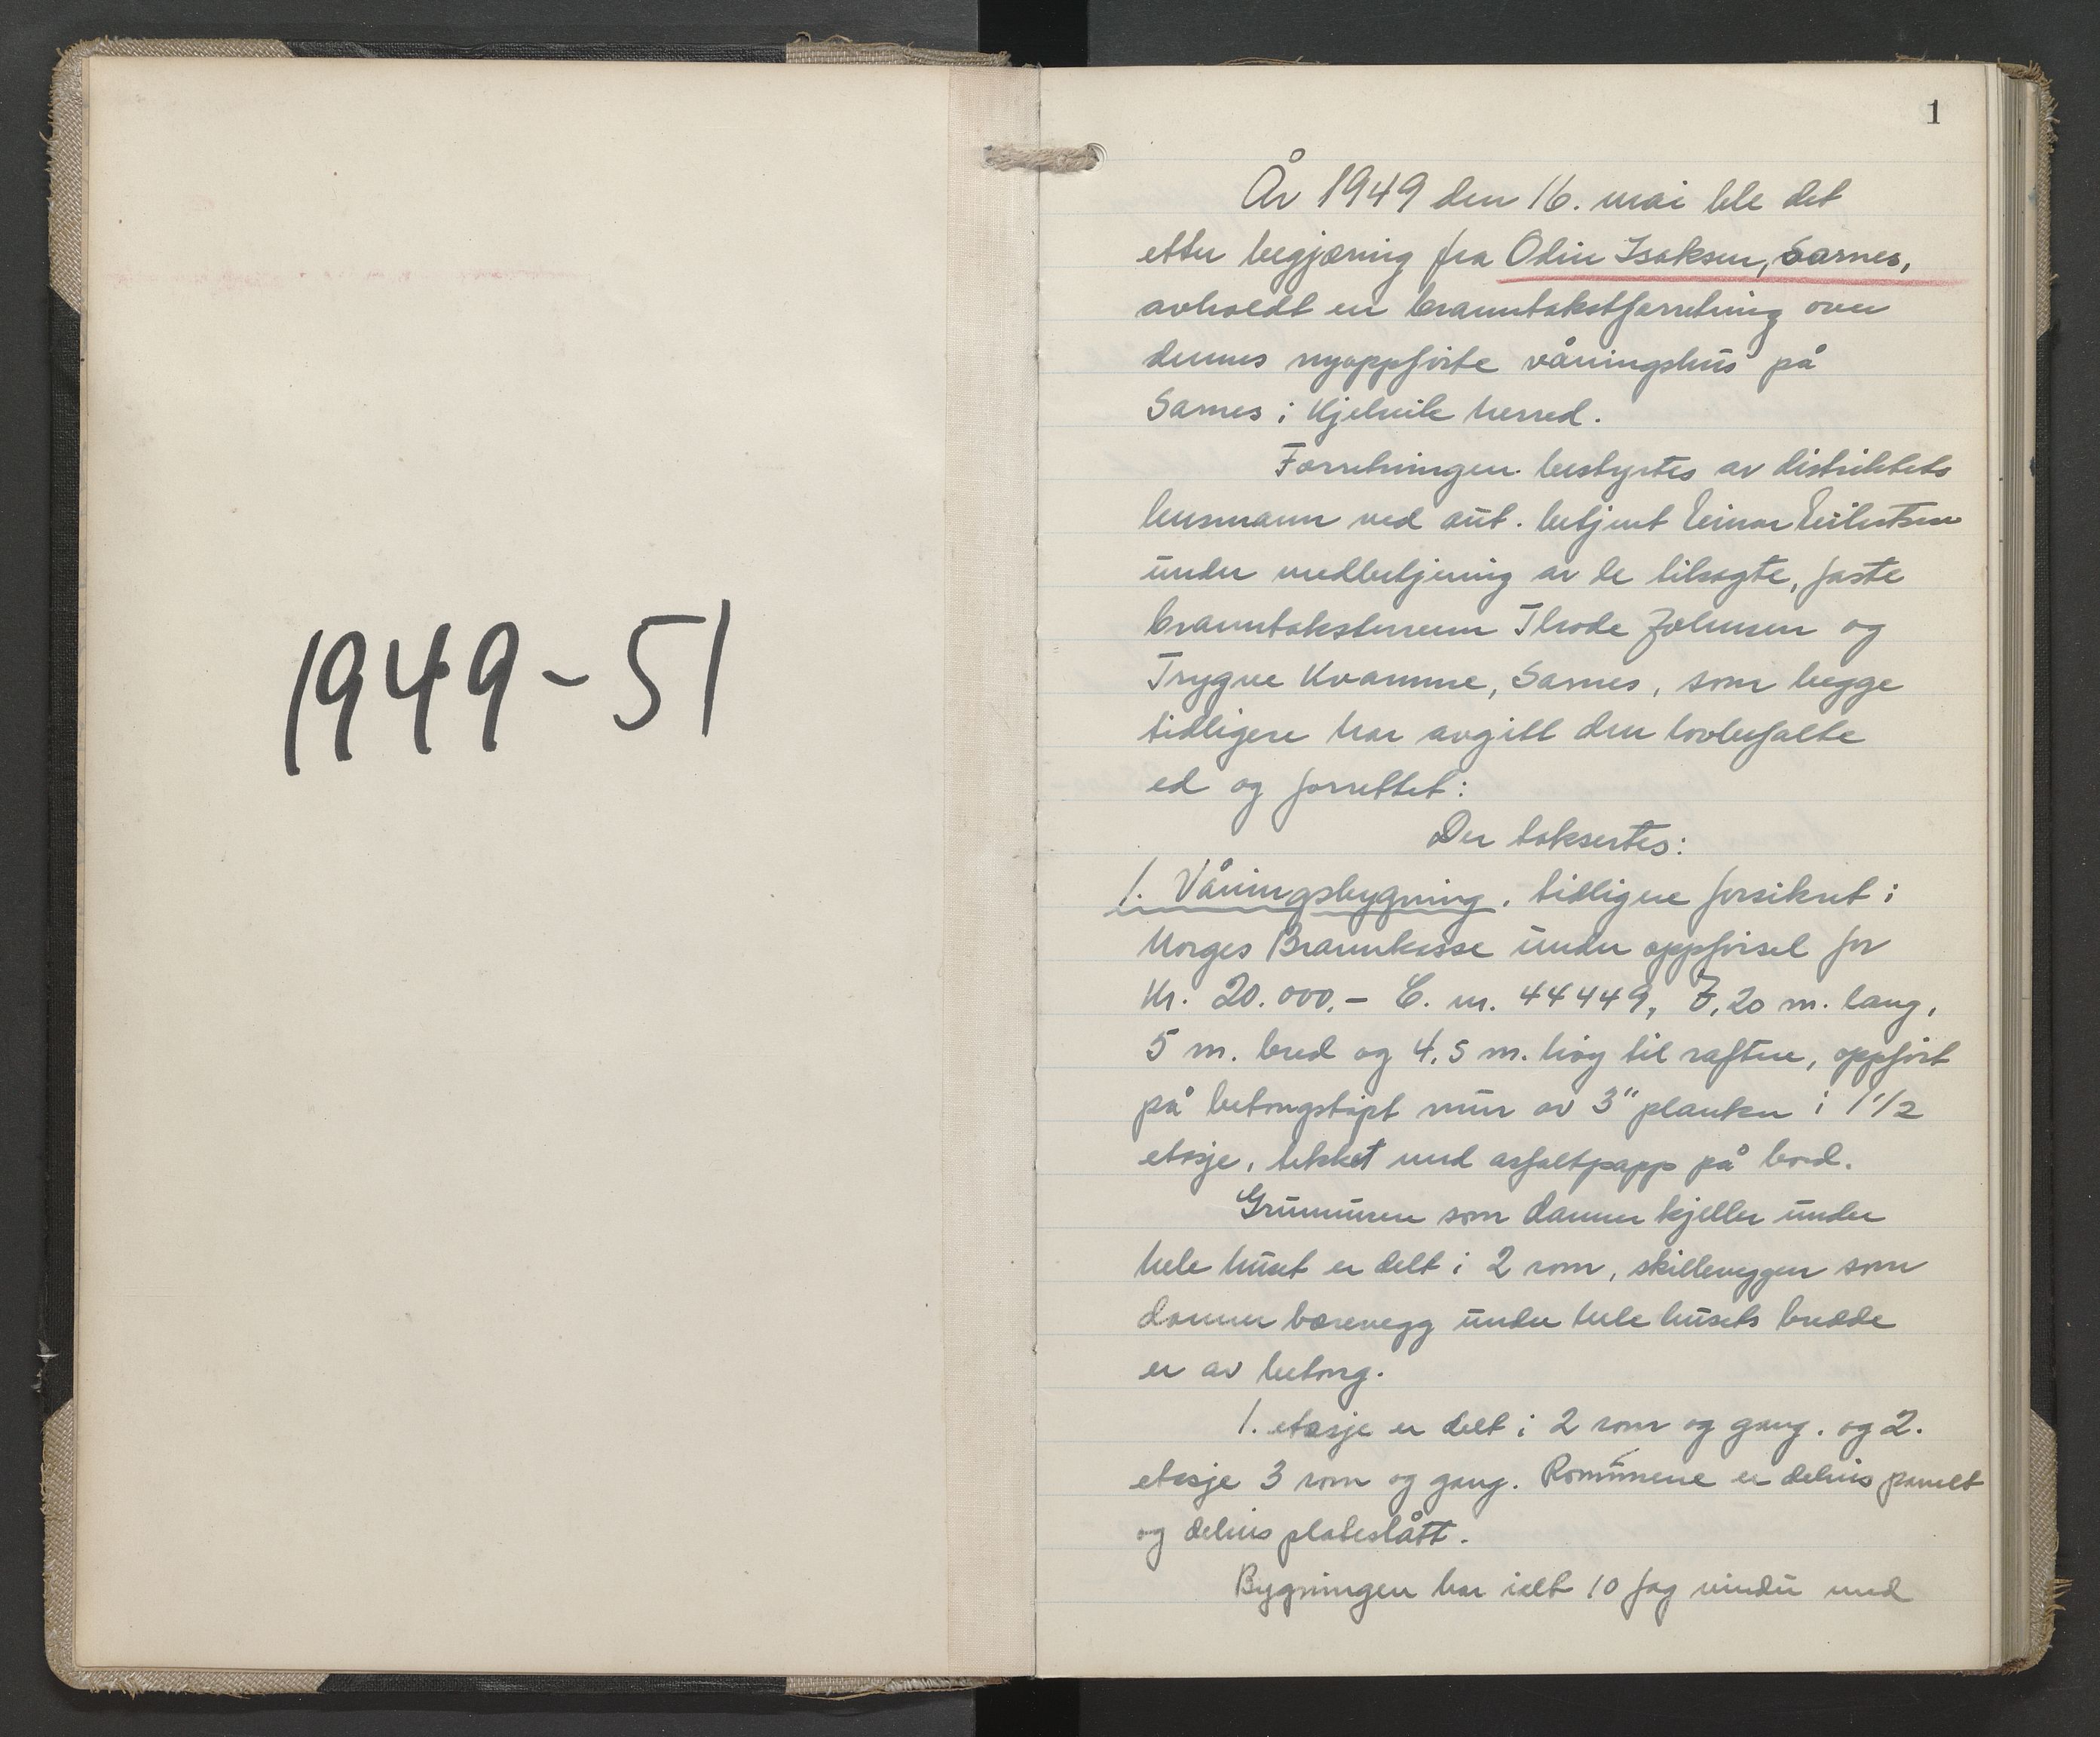 1949-51
1
År 1949 den 16. mai ble det
etter begjæring fra Odin Isaksen, Sarnes,
avholdt en branntakstforretning over
dennes nyoppførte våningshus på
Sarnes i Kjelvik herred.
Forretningen bestyrtes av distriktets
lensmann ved aut. betjent Einar Eilertsen
under medbetjening av de tilsagte, faste
branntakstmenn Johnsen og
Trygve Kvamme, Sarnes, som begge
tidligere har avgitt den lovbefalte
ed og forrettet:
Der taksertes:
1. Våningsbygning. tidligere forsikret i
Norges Brannkasse under oppførsel for
Kr. 20.000,- C. nr. 44449, 7,20 m. lang,
5 m. bred og 4,5 m. høy til raftene, oppført
på betongstøpt mur av 3" planker i 1 1/2
etasje, tekket med asfaltpapp på bord.
Grunnmuren som danner kjeller under
hele huset er delt i 2 rom, skilleveggen som
danner bærevegg under hele husets bredde
er av betong.
1. etasje er delt i 2 rom og gang. og 2.
etasje 3 rom og gang. Rommene er delvis panelt
og delvis plateslått.
Bygningen har ialt 10 fag vindu med